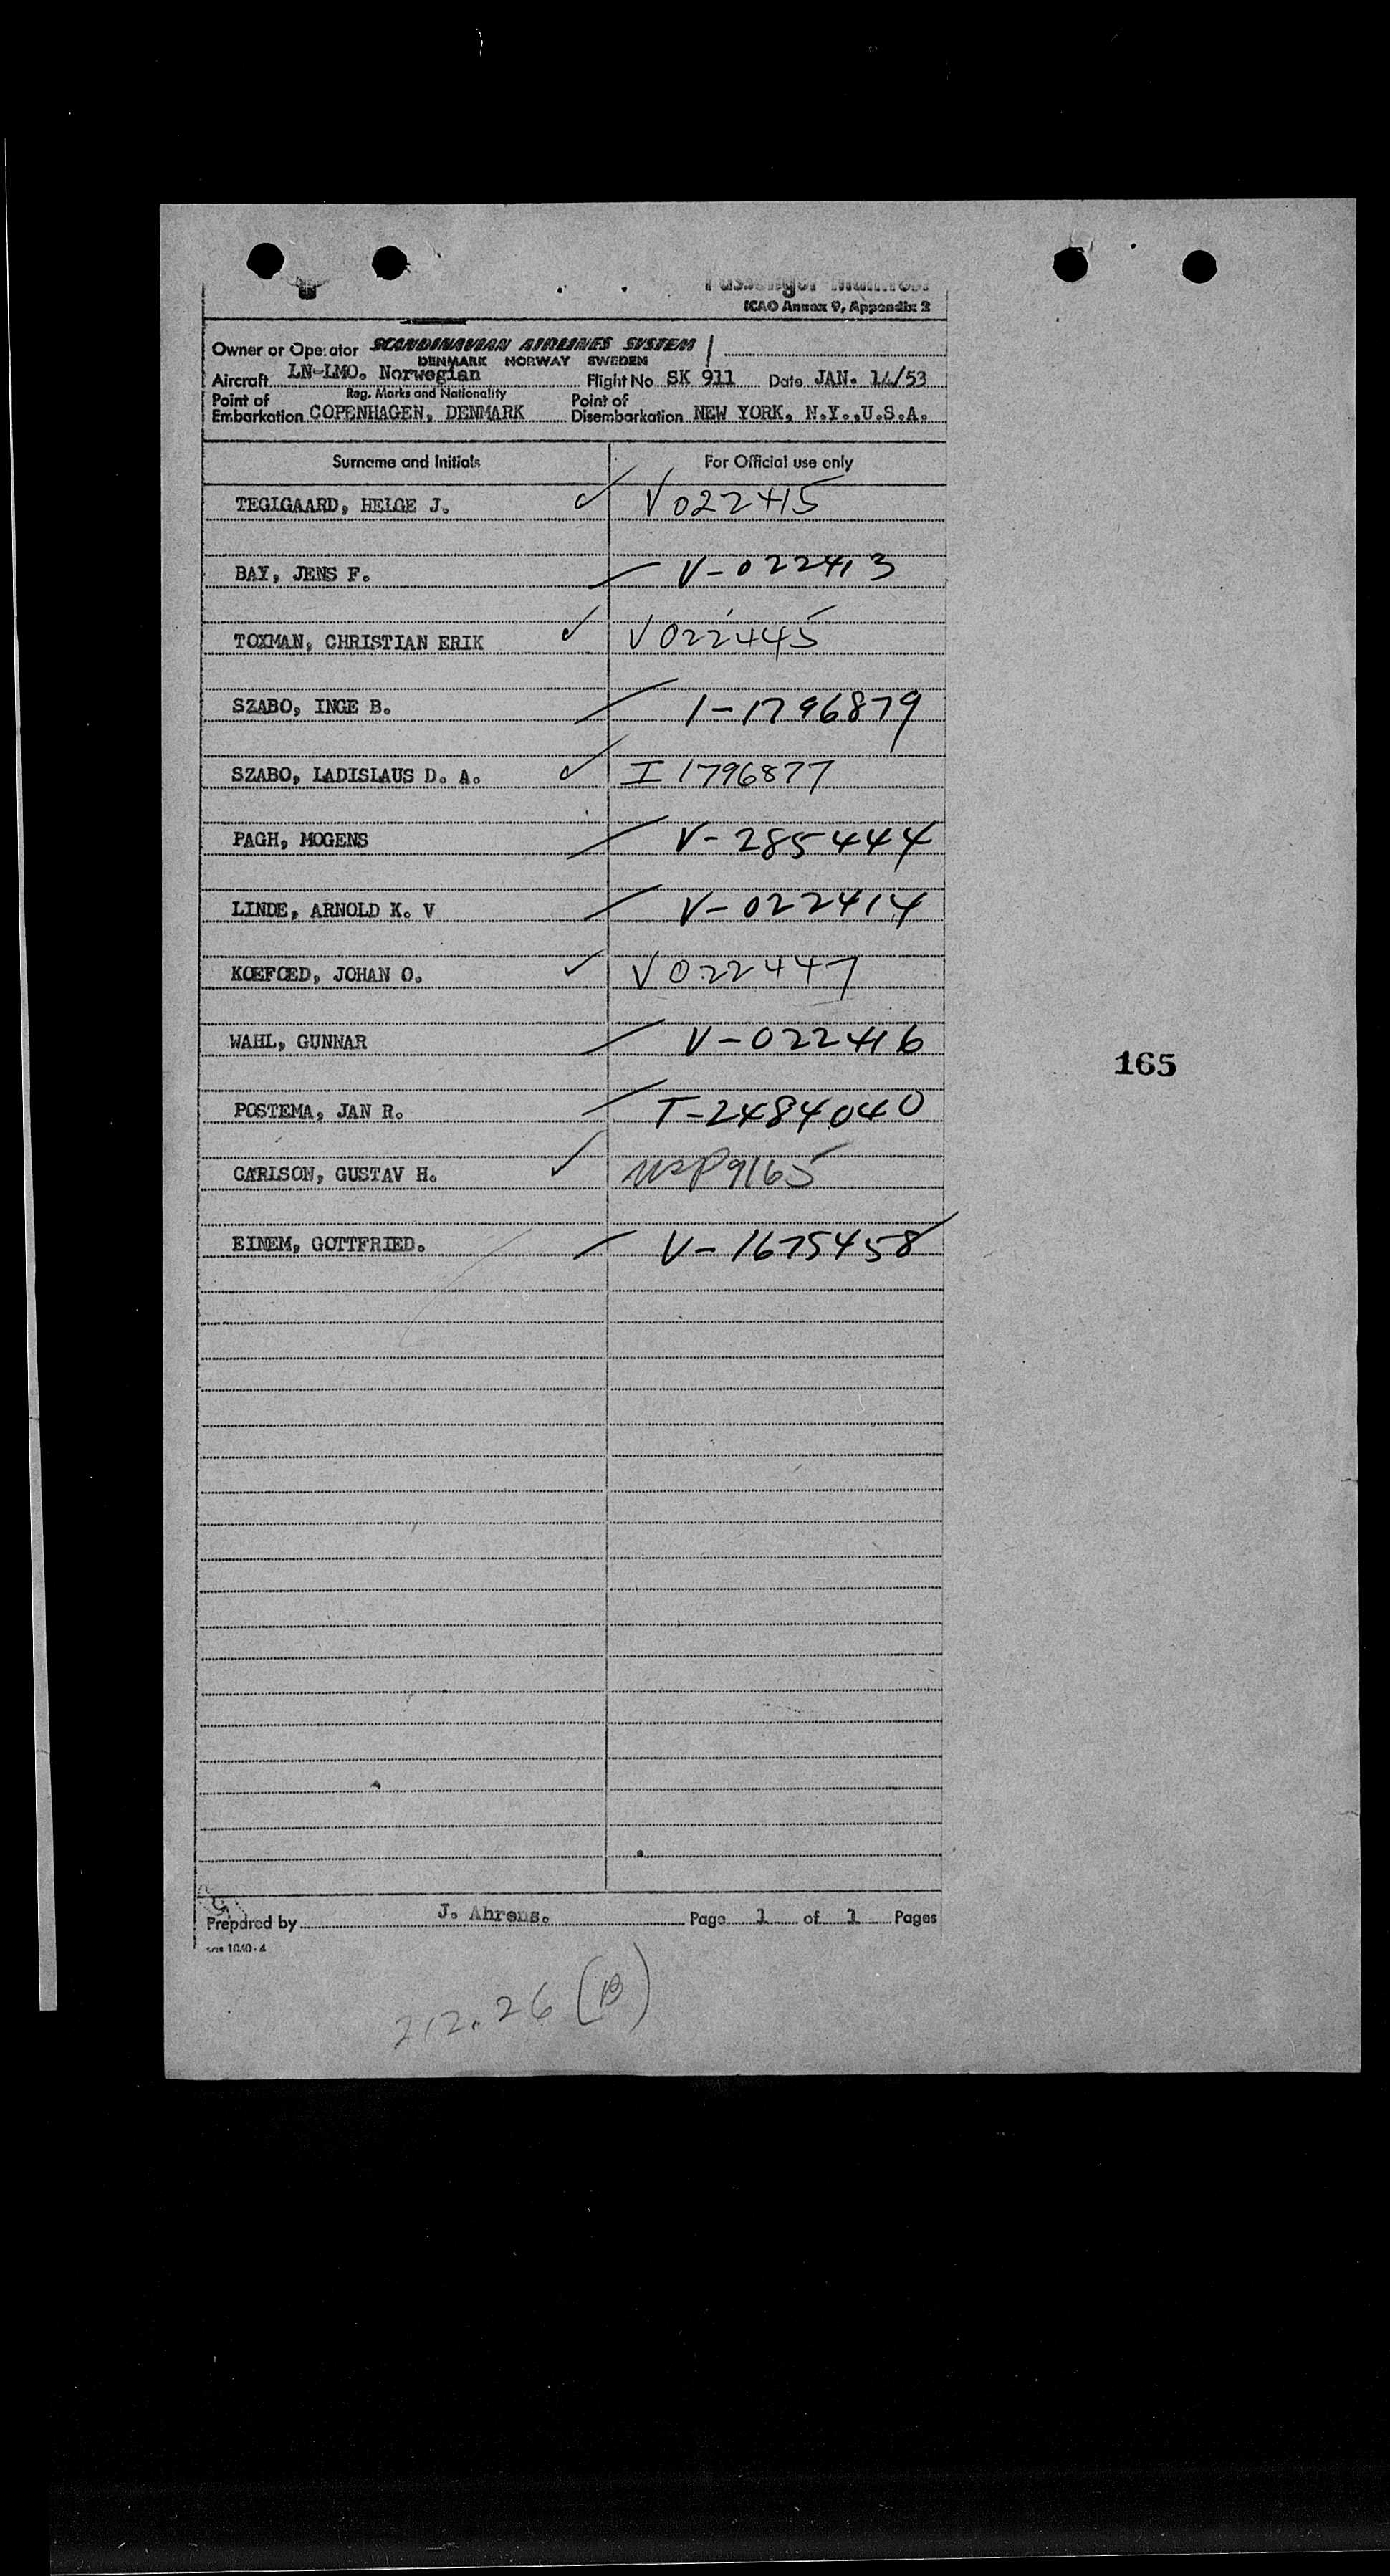 Passenger Manifest
ICAO Annex 9, Appendix 2
Owner or Operator SCANDINAVIAN AIRLINES SYSTEM
DENMARK NORWAY SWEDEN
Aircraft LN-LMO. Norwegian Flight No SK 911 Date JAN. 14/53
Reg. Marks and Nationality
Point of Embarkation COPENHAGEN, DENMARK Point of Disembarkation NEW YORK, N.Y.,U.S.A.
Surname and Initials For Official use only
TEGIGAARD, HELGE J. V022415
BAY, JENS F. V-022413
TOXMAN, CHRISTIAN ERIK V022445
SZABO, INGE B. I-1796879
SZABO, LADISLAUS D. A. I1796877
PAGH, MOGENS V-285444
LINDE, ARNOLD K. V V-022414
KOEFOED, JOHAN O. V022447
WAHL, GUNNAR V-022416
165
POSTEMA, JAN R. T-2484040
CARLSON, GUSTAV H. USP9165
EINEM, GOTTFRIED. V-1675458
Prepared by J. Ahrens. Page 1 of 1 Pages
1040-4
212.26 (B)